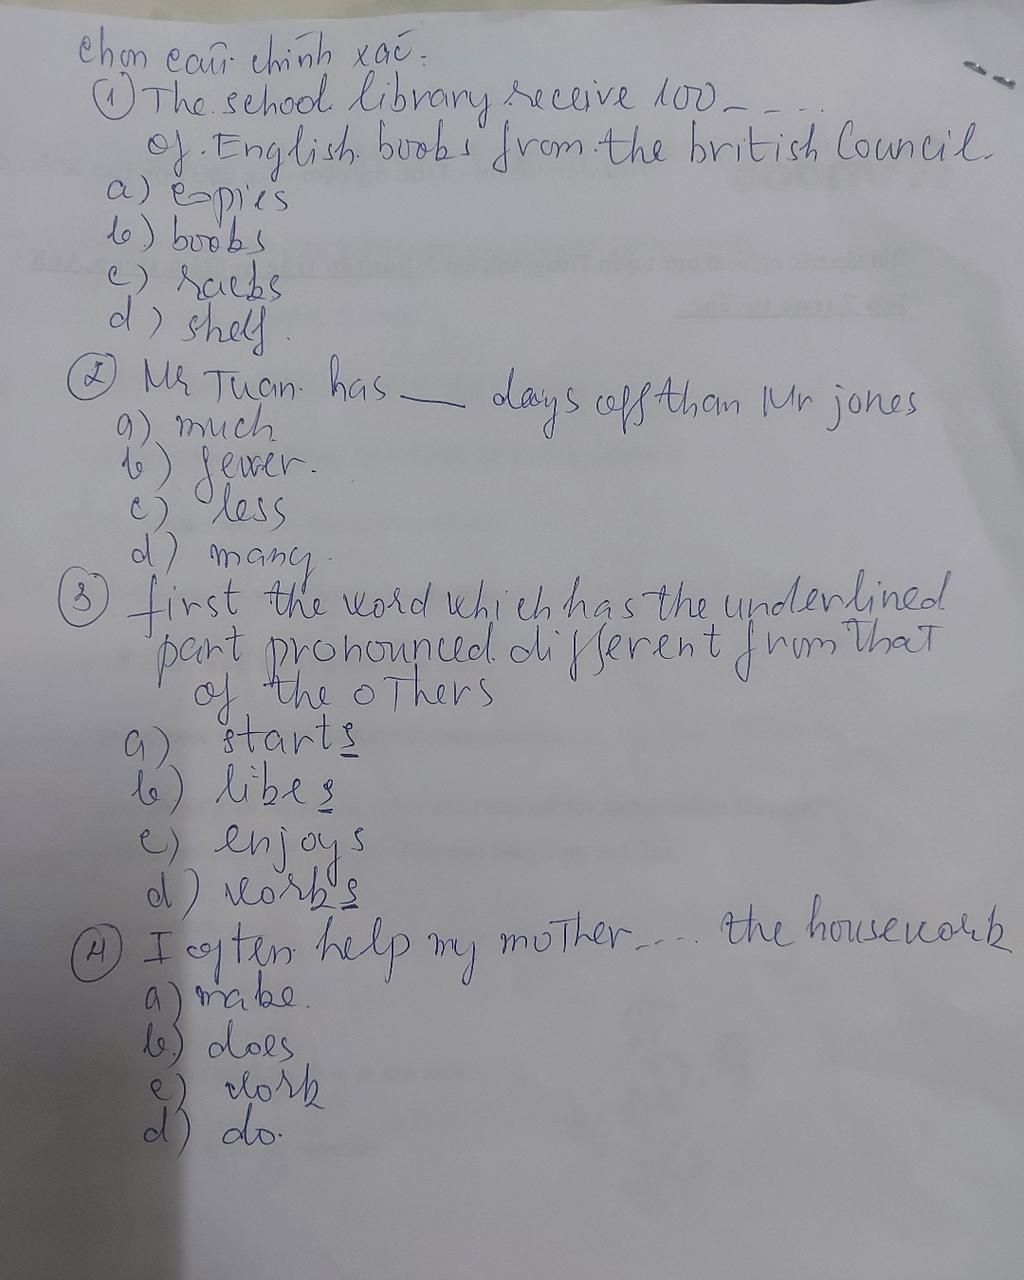 chọn câu chính xác:
① The school library receive 100 - - ...
of English books from the british Council.
a) copies
b) books
c) racks
d) shelf.
② Mr Tuan has ___ days off than Mr jones
a) much
b) fewer.
c) less
d) many.
③ first the word which has the underlined
part pronounced different from that
of the others
a) starts
b) likes
c) enjoys
d) works
④ I often help my mother .... the housework
a) make.
b) does
c) work
d) do.